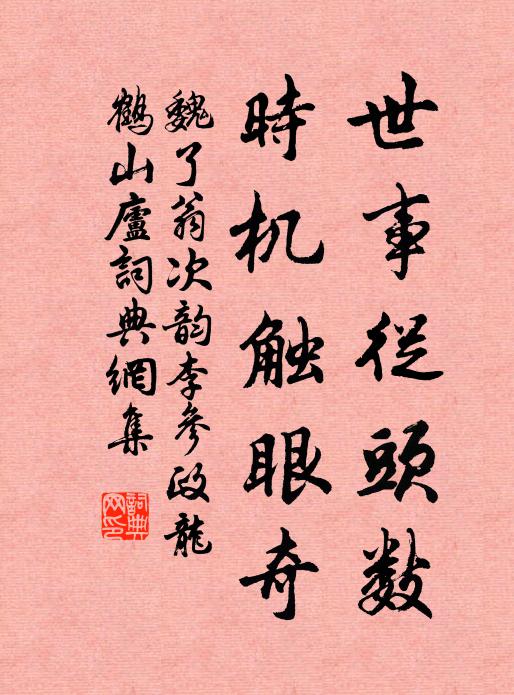 世事從頭数
時机触眼奇
魏了翁次韵李參政龍
鶴山廬詞典網集
詞典
网印